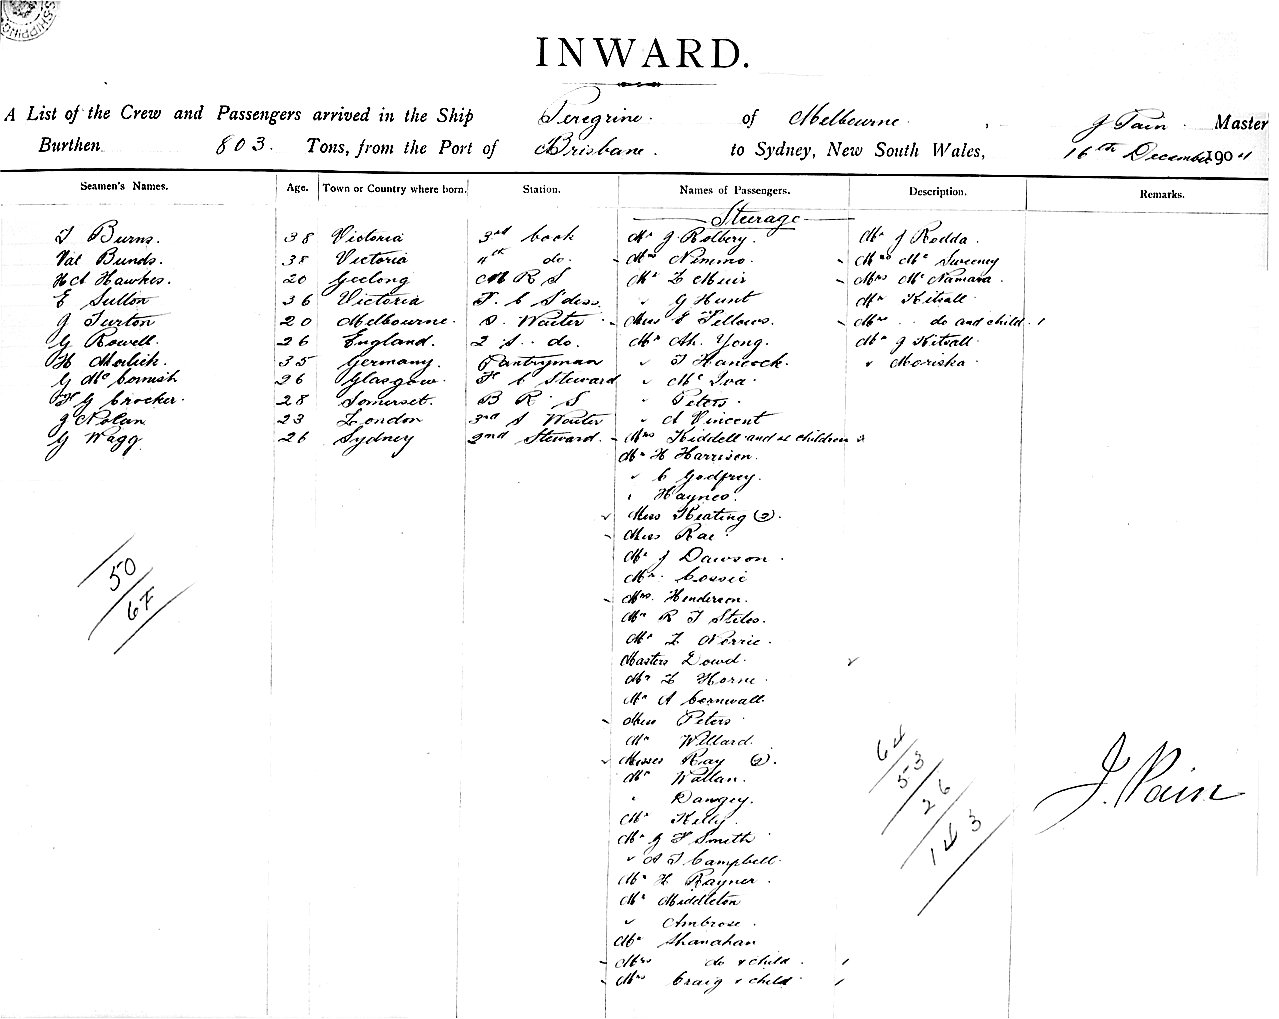 SHIPPING
INWARD.
A List of the Crew and Passengers arrived in the Ship Peregrine. of Melbourne. J Pain. Master
Burthen 803. Tons, from the Port of Brisbane. to Sydney, New South Wales, 16th December 1904
Seamen's Names. Age. Town or Country where born. Station. Names of Passengers. Description. Remarks.
Steerage
T Burns. 38 Victoria 3rd cook Mr J Rolbery. Mr J Rodda.
Val Bunds. 38 Victoria 4th do. Mrs Nimmo. Mrs Mc Sweeney
Hd Hawkes. 20 Geelong M R S Mr L Muir Mrs Mc Namara.
E Sutton 36 Victoria F. C S'dess. " G Hunt Mr Kitsall
J Turton 20 Melbourne. S. Waiter Miss E Fellows. Mrs do and child. 1
G Rowell. 26 England. 2 S. do. Mr Ah. Yong. Mr J Kitsall
H Morlich. 35 Germany. Pantryman " T Hancock. " Moriska
G Mc Cornish 26 Glasgow. F C Steward " Mc Iva
F G Crocker. 28 Somerset. B R S " Peters.
J Nolan 23 London 3rd S Waiter " A Vincent
G Wagg. 26 Sydney 2nd Steward. Mrs Kiddell and 2 children 2
Mr H Harrison.
" C Godfrey.
" Haynes.
Miss Keating (2).
Miss Rae.
Mr J Dawson.
Mr. Cossie
Mrs. Henderson.
Mr R T Stiles.
Mr L Norrie.
Masters Dowd.
Mr L Horne.
Mr A Cornwall.
Miss Peters
Mr Willard.
Misses Ray (2).
Mr Wallan.
" Dangey.
Mr Kelly.
Mr G F Smith
" A J Campbell.
Mr H Rayner.
Mr Middleton
" Ambrose.
Mr Shanahan
Mrs do & child. 1
Mrs Craig & child 1
50
67
64
53
26
143
J. Pain